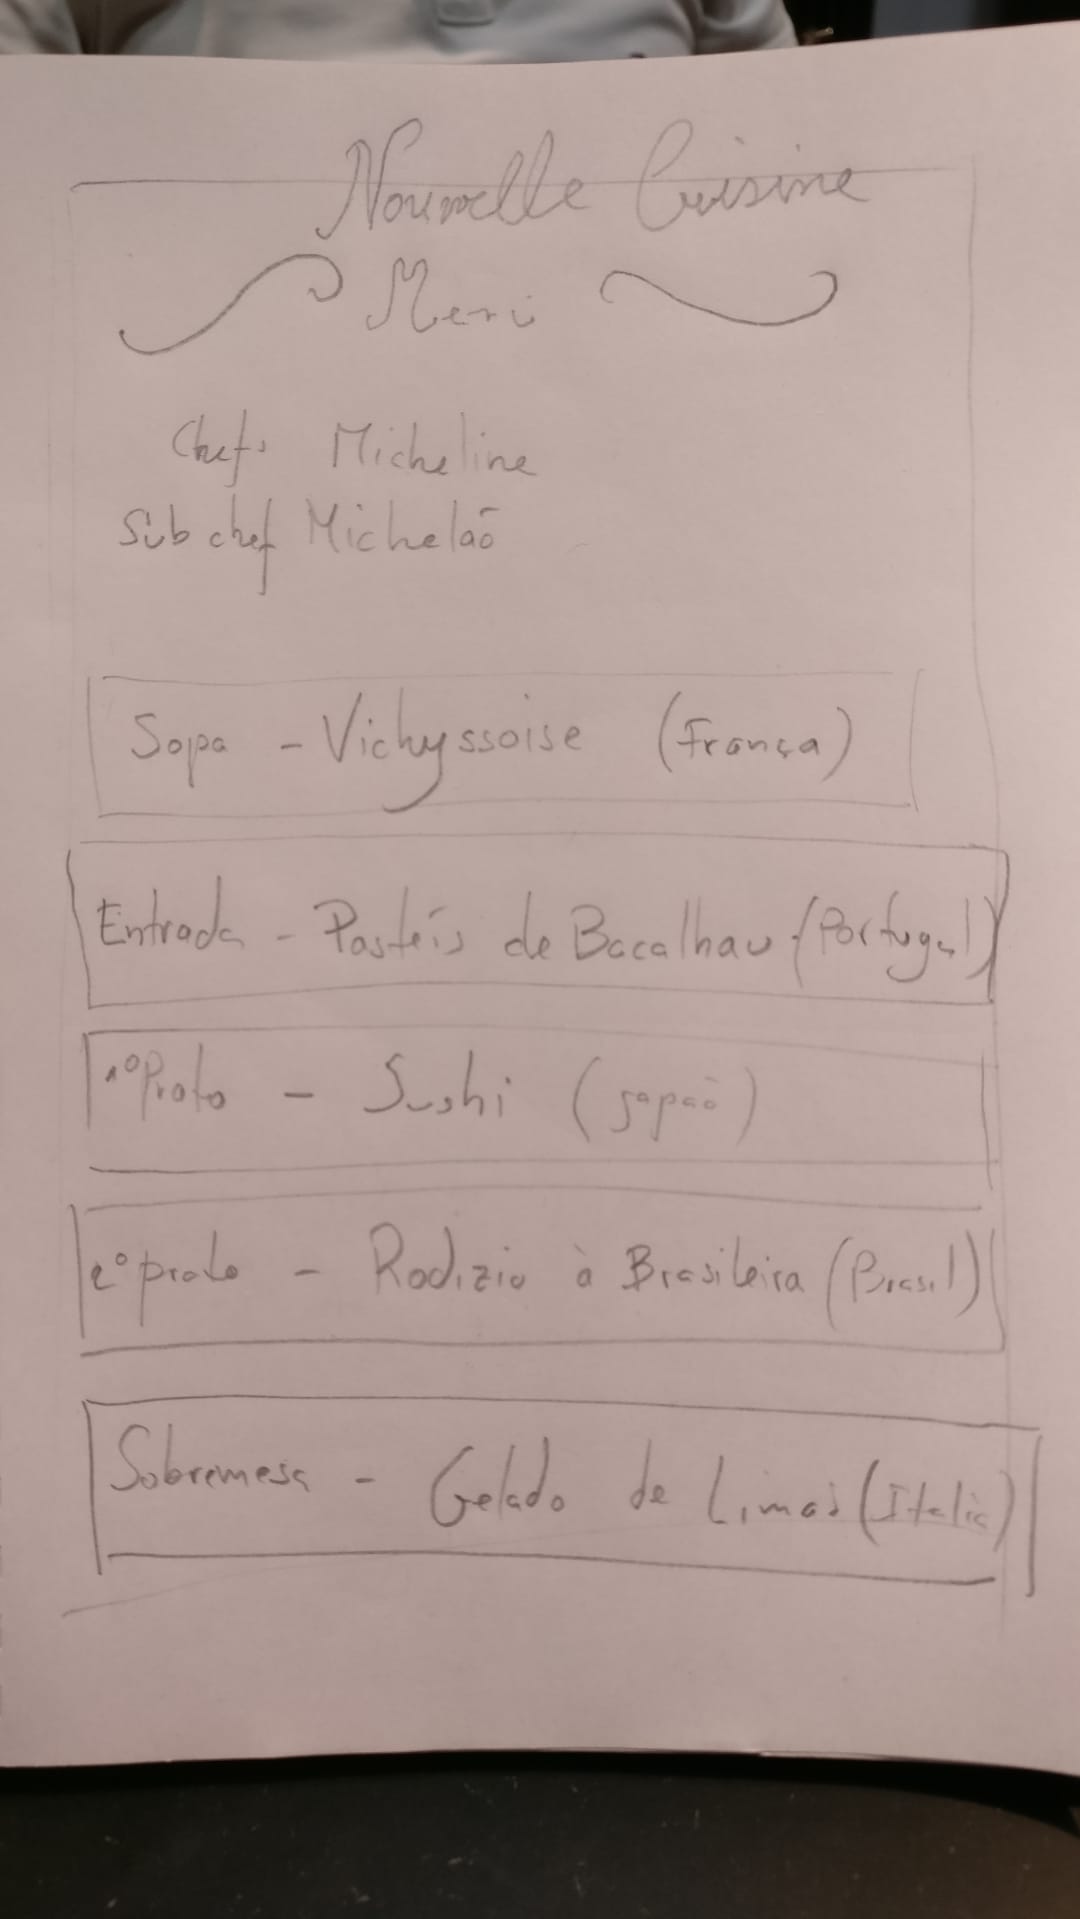 Nouvelle Cuisine
Menu
Chef: Micheline
Sub chef Michelão
Sopa - Vichyssoise (França)
Entrada - Pastéis de Bacalhau (Portugal)
1º Prato - Sushi (Japão)
2º prato - Rodizio à Brasileira (Brasil)
Sobremesa - Gelado de Limão (Italia)